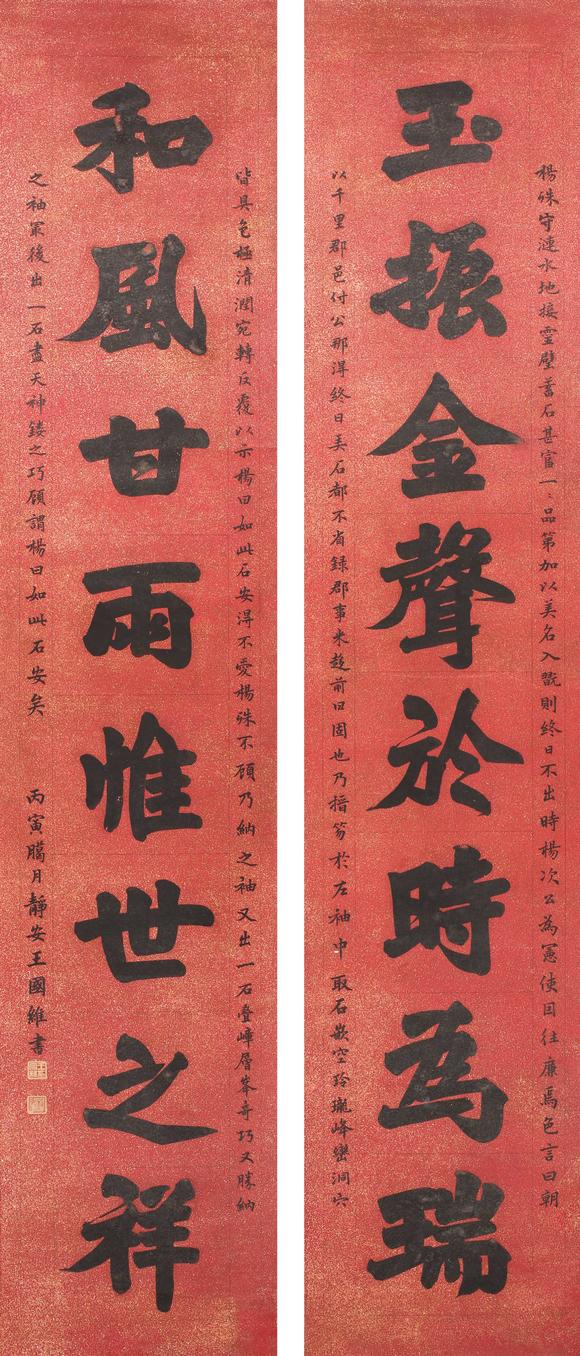 楊殊守漣水地接靈壁蓄石甚富一〻品第加以美名入翫則終日不出時楊次公為憲使因往廉焉色言曰朝
玉振金聲於時為瑞
以千里郡邑付公那淂終日美石都不省録郡事米趍前曰固也乃搢笏於左袖中取石嵌空玲瓏峰巒洞穴
皆具色極清潤宛轉反覆以示楊曰如此石安淂不愛楊殊不顧乃納之袖又出一石叠嶂層峯奇巧又勝納
和風甘雨惟世之祥
之袖冣後出一石盡天神鏤之巧顧謂楊曰如此石安矣
丙寅臈月靜安王國維書